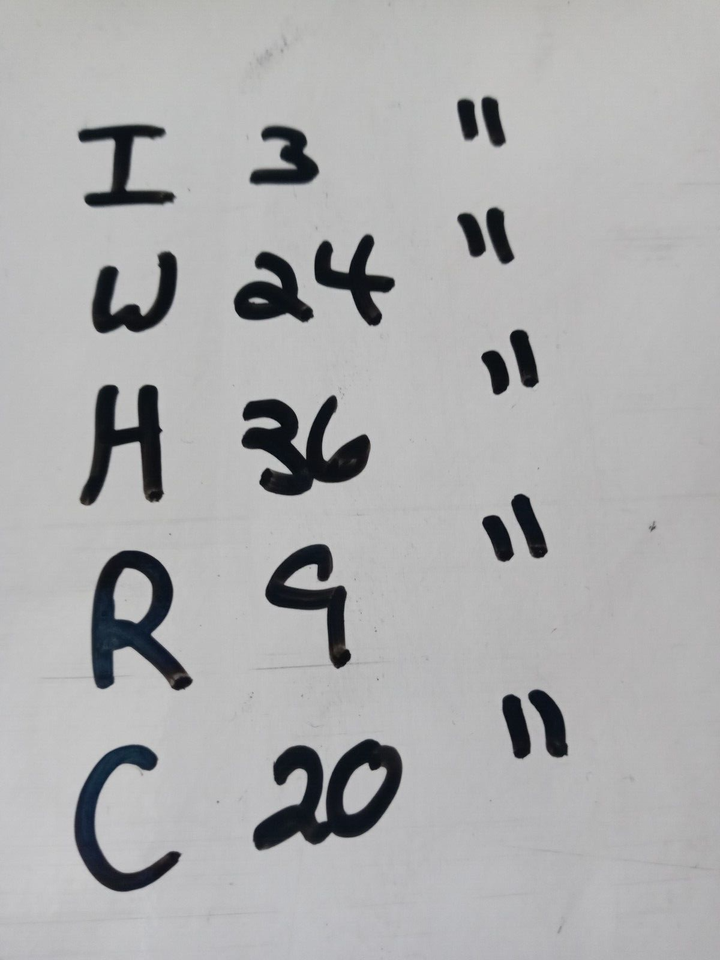 I 3 "
W 24 "
H 36 "
R 9 "
C 20 "